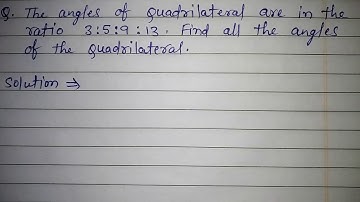 Q. The angles of quadrilateral are in the
ratio 3:5:9:13. Find all the angles
of the quadrilateral.
Solution ⇒